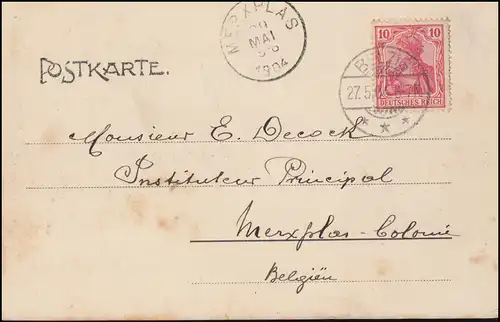 POSTKARTE.
MERXPLAS
MAI
1904
10 10
DEUTSCHES REICH
27.5.
Monsieur E. Decock
Instituteur Principal
Merxplas-Colonie
Belgiën